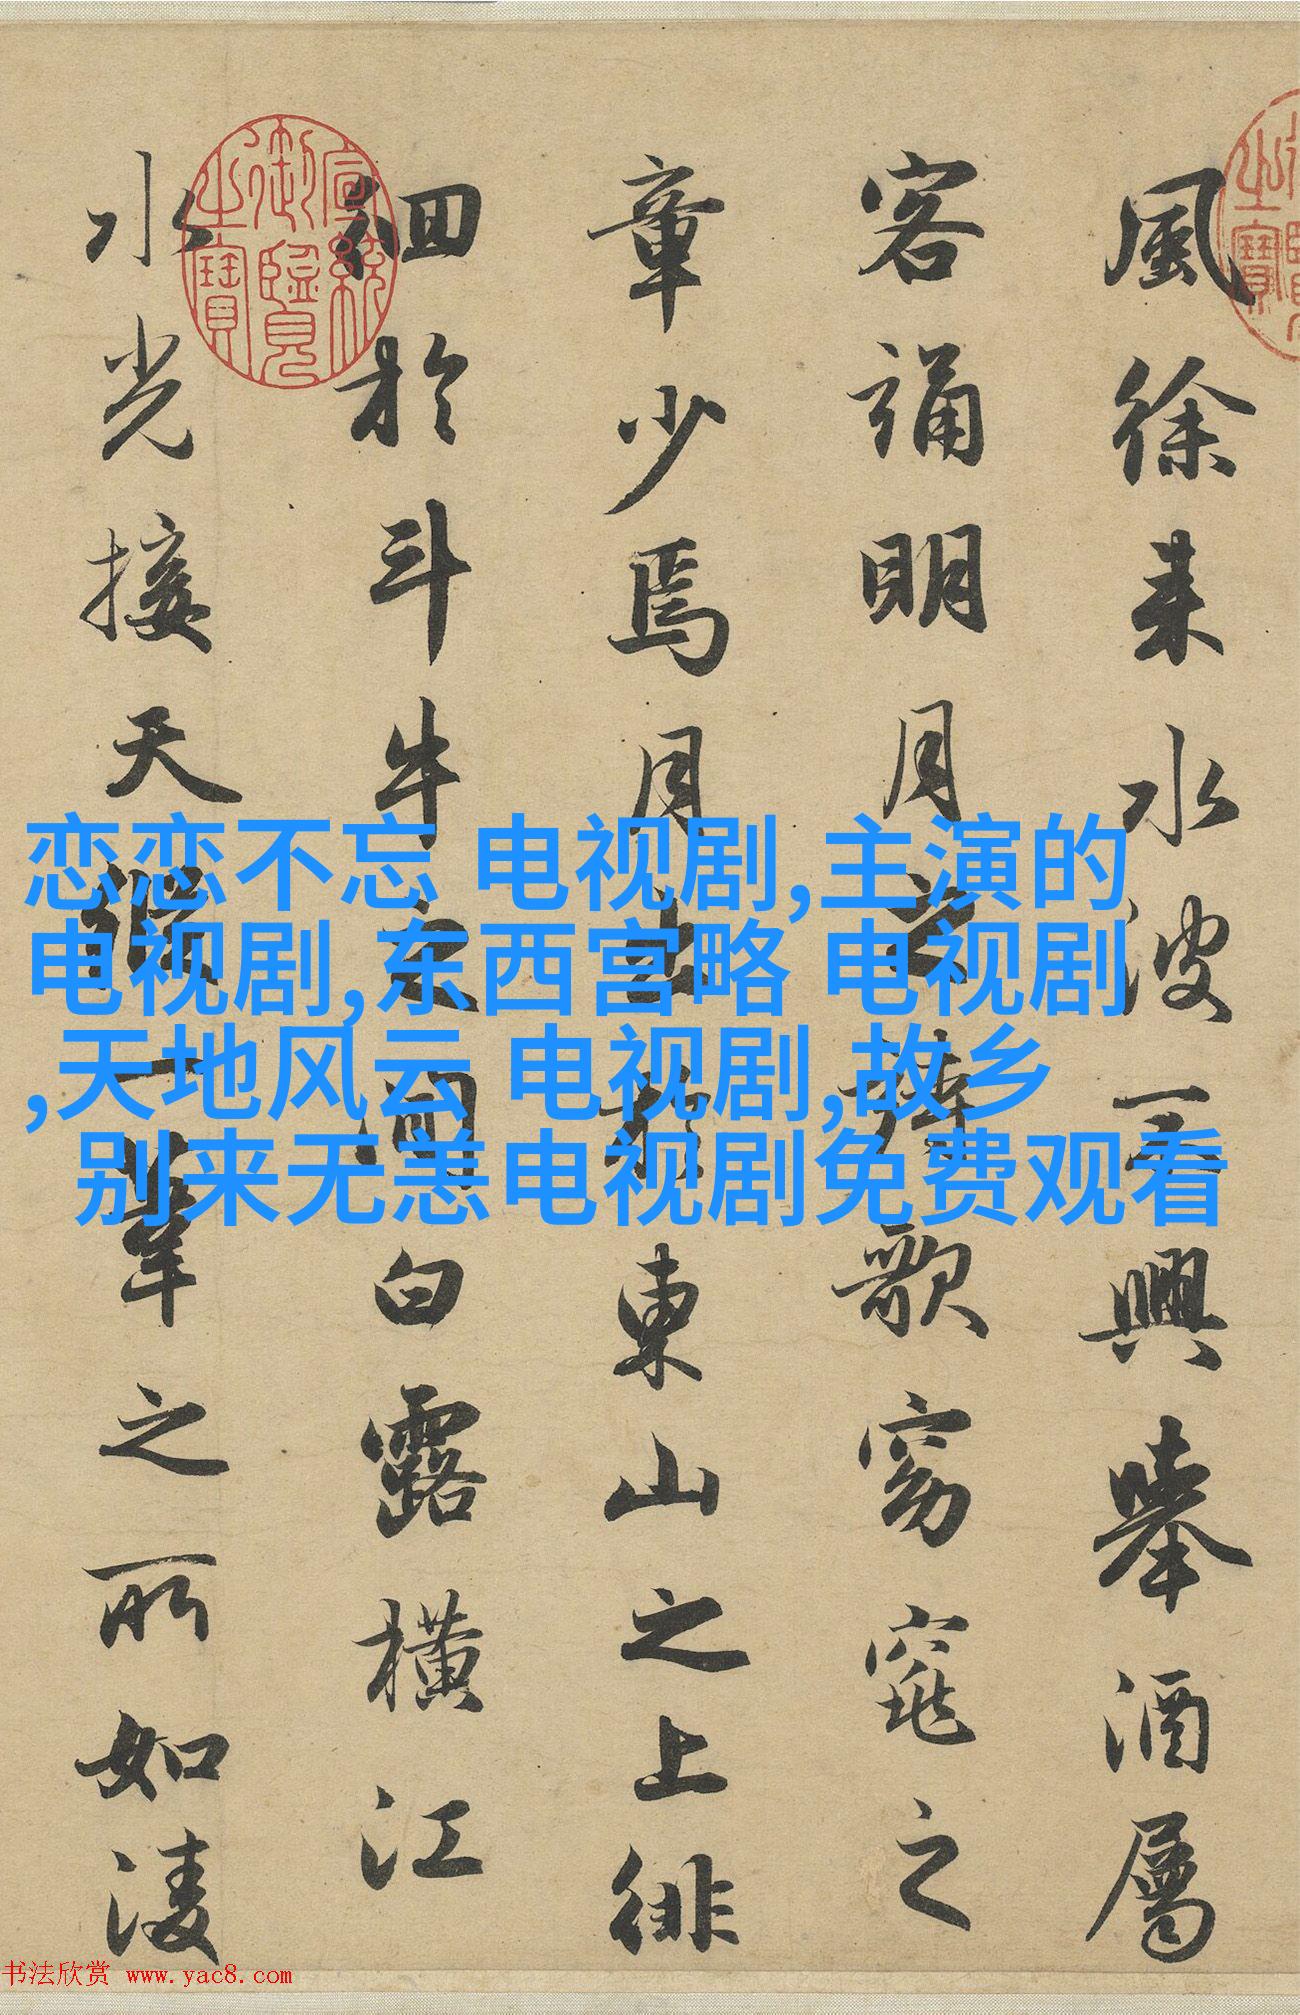 風徐来水波不興舉酒屬
客誦明月之詩歌窈窕之
章少焉月出於東山之上徘
徊於斗牛之間白露橫江
水光接天縱一葦之所如淩
宣統御覽之寶
恋恋不忘 电视剧,主演的
电视剧,东西宫略 电视剧
,天地风云 电视剧,故乡
别来无恙电视剧免费观看
书法欣赏 www.yac8.com